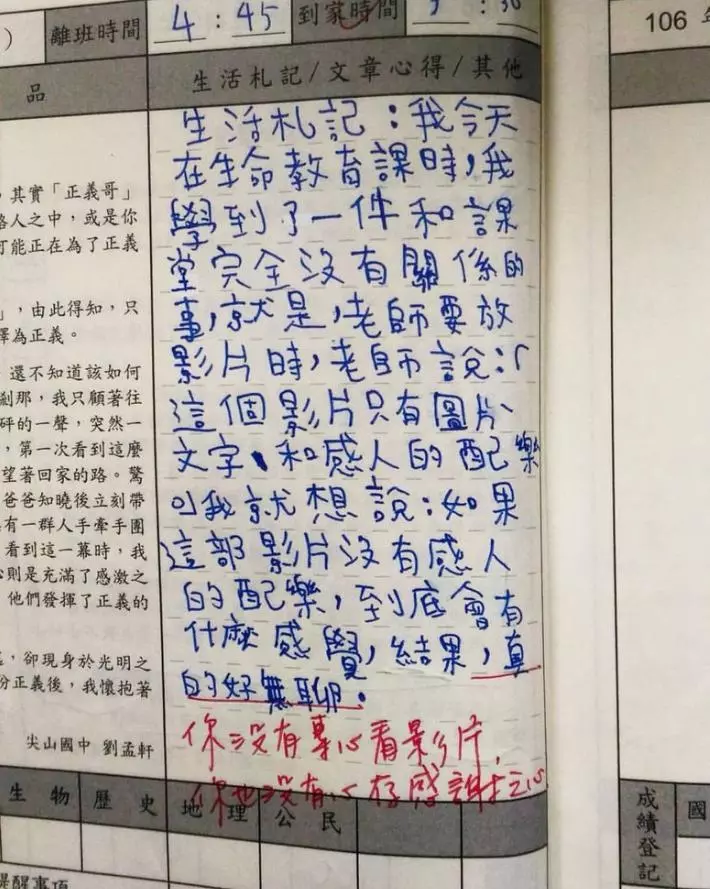 )
離班時間
4:45
到家時間
5:30
106
品
生活札記/文章心得/其他
其實「正義哥」
路人之中,或是你
可能正在為了正義
」,由此得知,只
釋為正義。
還不知道該如何
剎那,我只顧著往
砰的一聲,突然一
,第一次看到這麼
望著回家的路。驚
爸爸知曉後立刻帶
有一群人手牽手圍
看到這一幕時,我
心則是充滿了感激之
他們發揮了正義的
,卻現身於光明之
份正義後,我懷抱著
尖山國中 劉孟軒
生活札記:我今天
在生命教育課時,我
學到了一件和課
堂完全沒有關係的
事,就是,老師要放
影片時,老師說:「
這個影片只有圖片、
文字、和感人的配樂
」我就想說:如果
這部影片沒有感人
的配樂,到底會有
什麼感覺,結果,真
的好無聊。
你沒有專心看影片,
你也沒有心存感謝之心
生物
歷史
地理
公民
成績登記
國
提醒事項